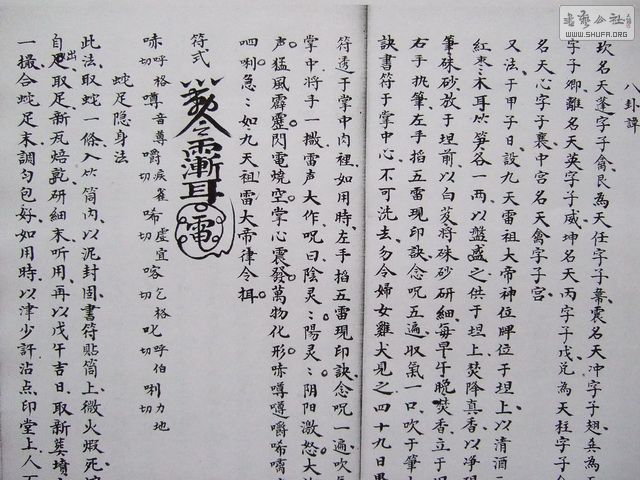 八卦諱
坎名天蓬字子禽艮為天任字子 震名天冲字子翅 為
字子卿離名天英字子威坤名天丙字子戊兌為天柱字子
名天心字子襄中宮名天禽字子宮
又法于甲子日設九天雷祖大帝神位牌位于坦上以清酒
紅枣木耳竹笋各一两以盤盛之供于坦上焚降真香以净
筆硃砂放于坦前以白芨将硃砂研細每早午晚焚香立于
右手执筆左手掐五雷現印訣念呪五遍取氣一口吹于筆
訣書符于掌中心不可洗去勿令婦女雞犬見之四十九日
符透于掌中肉裡如用時左手掐五雷現印訣念呪一遍吹
掌中将手一撒雷声大作呪曰陰灵〻陽灵〻阴阳激怒大
声猛風霹靂閃電燒空掌心震發萬物化形味噂嘚嚼唏
呬唎急〻如九天祖雷大帝律令揖
符式
味呼格切噂音尊嚼疾雀切唏虛宜切喀乞格切叱呼伯切唎力地切
蛇足隐身法
此法取蛇一條入竹筒内以泥封固書符貼筒上微火煅死
自出足取足新瓦焙乾研細末听用再以戊午吉日取新 墳
一撮合蛇足末調匀包好如用時以津少許沾点印堂上人
書藝公社
WWW.SHUFA.ORG